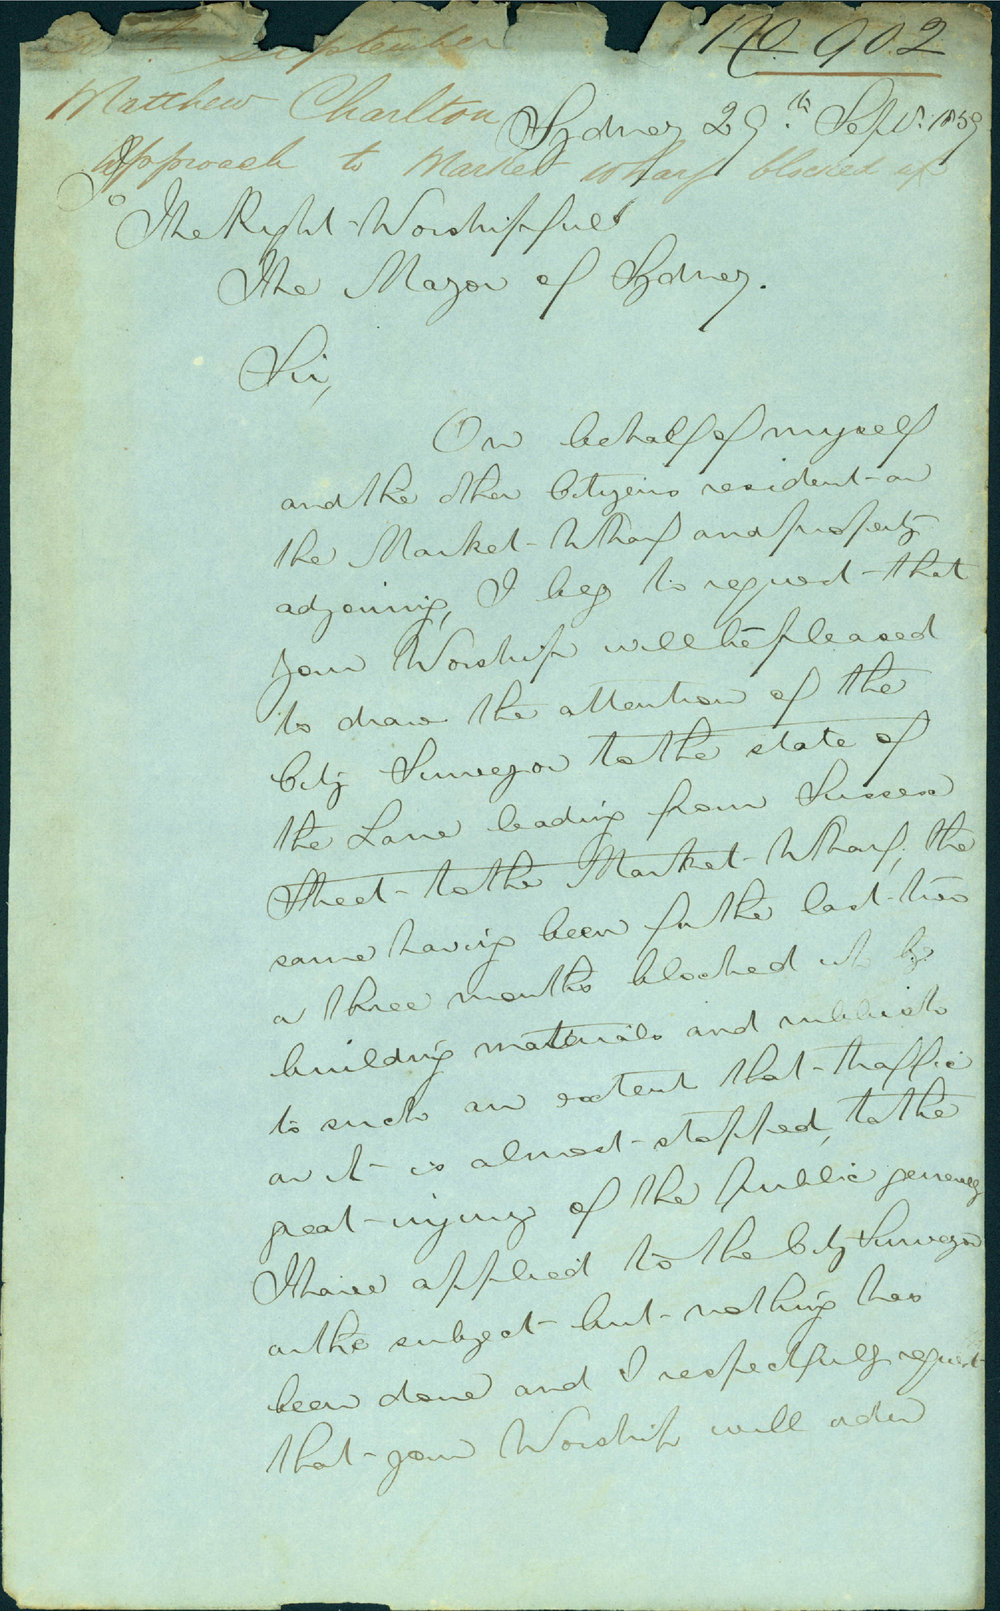 30th September
No. 902
Matthew Charlton
Sydney 29th Sept. 1859
Approach to Market Wharf blocked up
To
The Right Worshipful
The Mayor of Sydney.
Sir,
On behalf of myself
and the other Citizens resident on
the Market Wharf and property
adjoining, I beg to request that
your Worship will be pleased
to draw the attention of the
City Surveyor to the state of
the Lane leading from Sussex
Street to the Market Wharf, the
same having been for the last two
or three months blocked up by
building materials and rubbish
to such an extent that traffic
on it is almost stopped, to the
great injury of the Public generally
I have applied to the City Surveyor
on the subject but nothing has
been done and I respectfully request
that your Worship will order